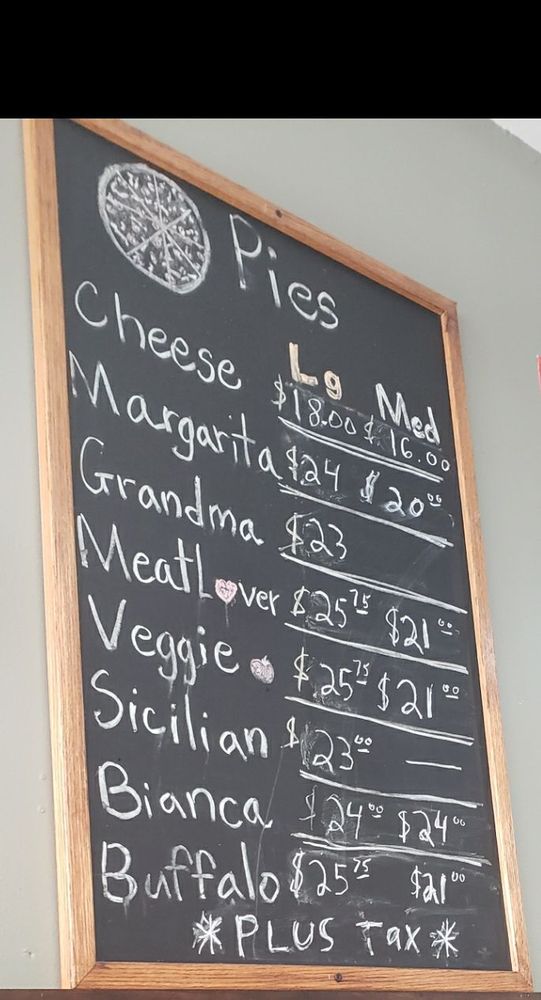 Pies
Lg Med
Cheese $18.00 $16.00
Margarita $24 $20.00
Grandma $23
MeatLover $25.75 $21.00
Veggie $25.75 $21.00
Sicilian $23.00 —
Bianca $24.00 $24.00
Buffalo $25.75 $21.00
*PLUS Tax*